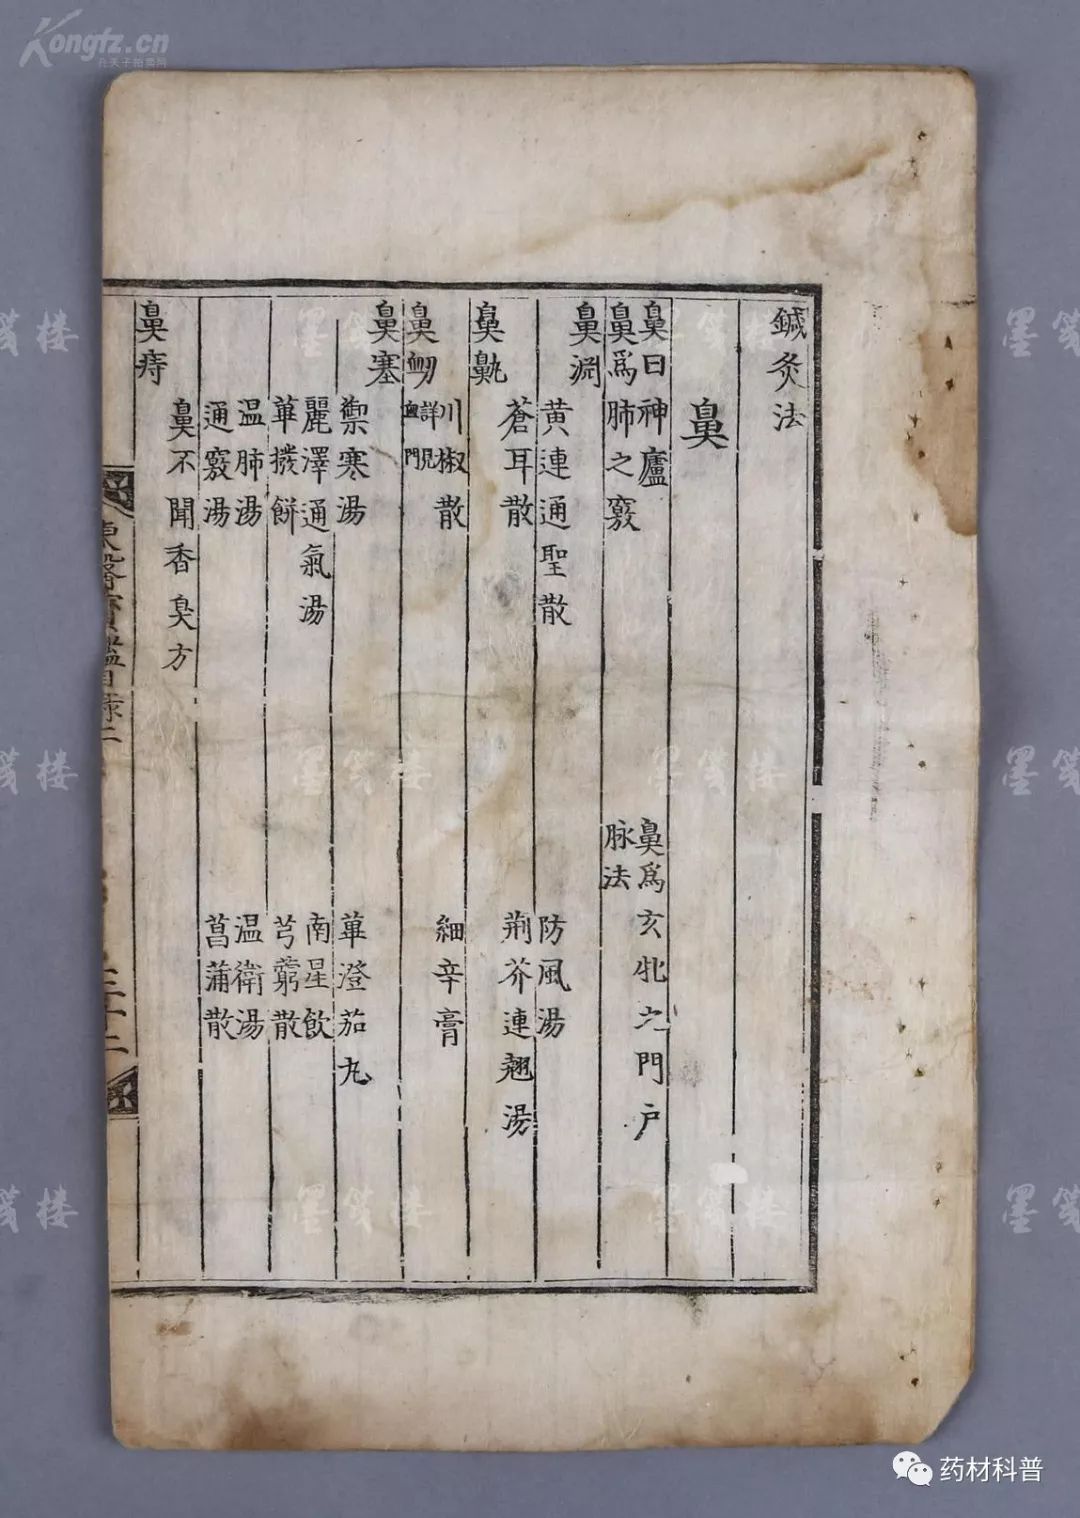 鍼灸法
鼻
鼻曰神廬
鼻爲玄牝之門戶
鼻爲肺之竅
脉法
鼻淵
黄連通聖散
防風湯
鼻鼽
蒼耳散
荆芥連翹湯
川椒散
細辛膏
鼻衂
詳見
血門
鼻塞
禦寒湯
蓽澄茄丸
麗澤通氣湯
南星飲
蓽撥餅
芎藭散
温肺湯
温衛湯
通竅湯
菖蒲散
鼻痔
鼻不聞香臭方
東醫寶鑑目録二
三十二
Kongfz.cn
孔夫子拍卖网
墨笺楼
药材科普